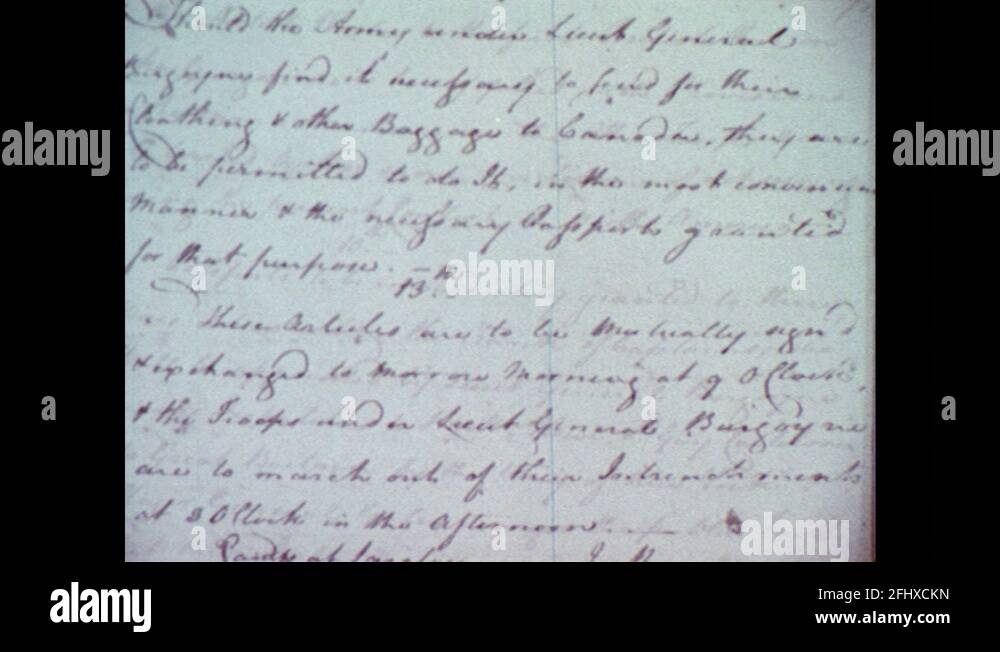 Should the Army under Lieut General
Burgoyne find it necessary to send for their
Cloathing & other Baggage to Canada, they are
to be permitted to do It, in the most convenient
Manner & the necessary Passports granted
for that purpose.
13th
These Articles are to be Mutually sign'd
& exchanged to Morrow Morning at 9 O Clock,
& the Troops under Lieut General Burgoyne
are to march out of their Intrenchments
at 3 O Clock in the Afternoon.
Camp at
alamy
alamy
alamy
Image ID: 2FHXCKN
www.alamy.com